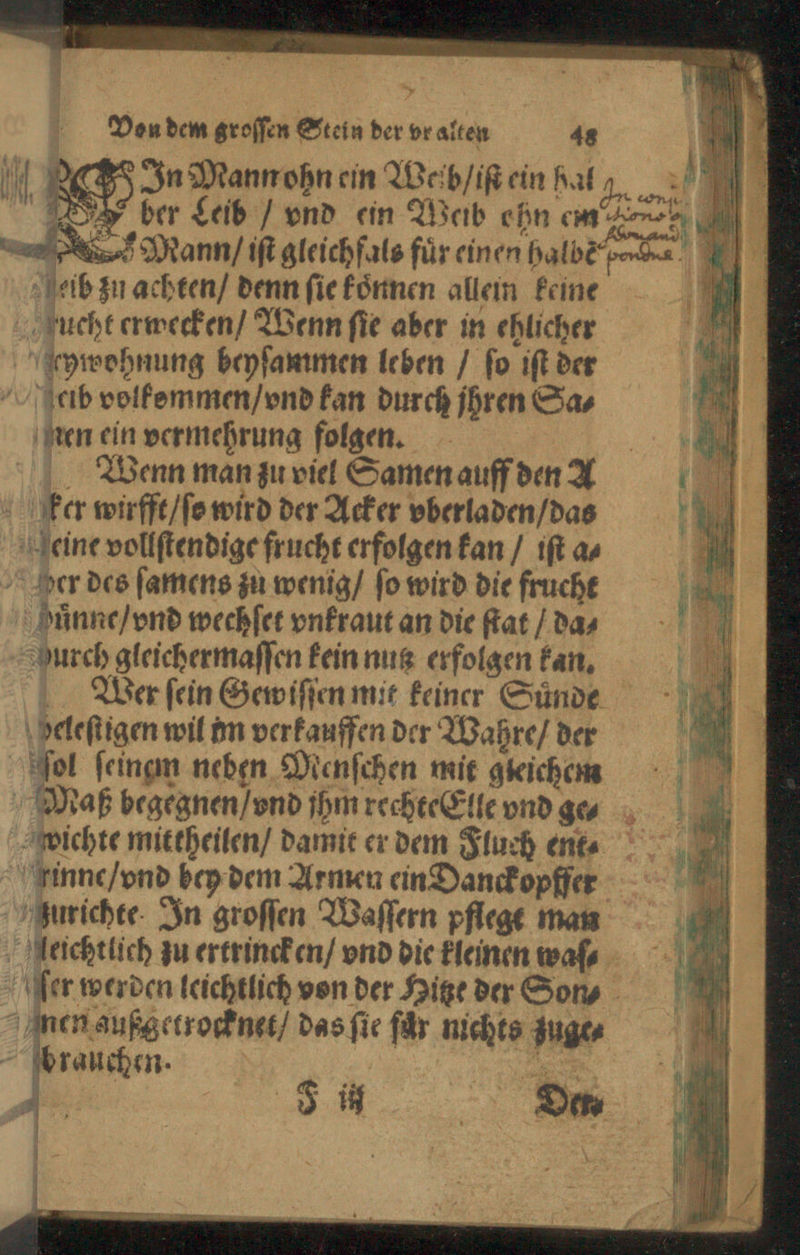 Von dem grossen Stein der vralten 48
EIn Mann ohn ein Weib/ist ein hal
ber Leib / vnd ein Weib ohn ein
Mann/ ist gleichfals fůr einen halbẽ
eib zu achten/ denn sie kȯnnen allein keine
ucht erwecken/ Wenn sie aber in ehlicher
eywohnung beysammen leben / so ist der
eib volkommen/vnd kan durch jhren Sa-
men ein vermehrung folgen.
Wenn man zu viel Samen auff den A
ker wirfft/so wird der Acker vberladen/das
keine vollstendige frucht erfolgen kan / ist a-
ber des samens zu wenig/ so wird die frucht
důnne/vnd wechset vnkraut an die stat / da-
durch gleichermassen kein nutz erfolgen kan.
Wer sein Gewissen mit keiner Sůnde
belestigen wil im verkauffen der Wahre/ der
sol seinem neben Menschen mit gleichem
Maß begegnen/vnd jhm rechte Elle vnd ge-
wichte mittheilen/ damit er dem Fluch ent-
rinne/vnd bey dem Armen ein Danckopffer
zurichte. In grossen Wassern pflegt man
leichtlich zu ertrincken/ vnd die kleinen was-
ser werden leichtlich von der Hitze der Son-
nen außgetrocknet/ das sie fůr nichts zuge-
brauchen.
F iij Den-